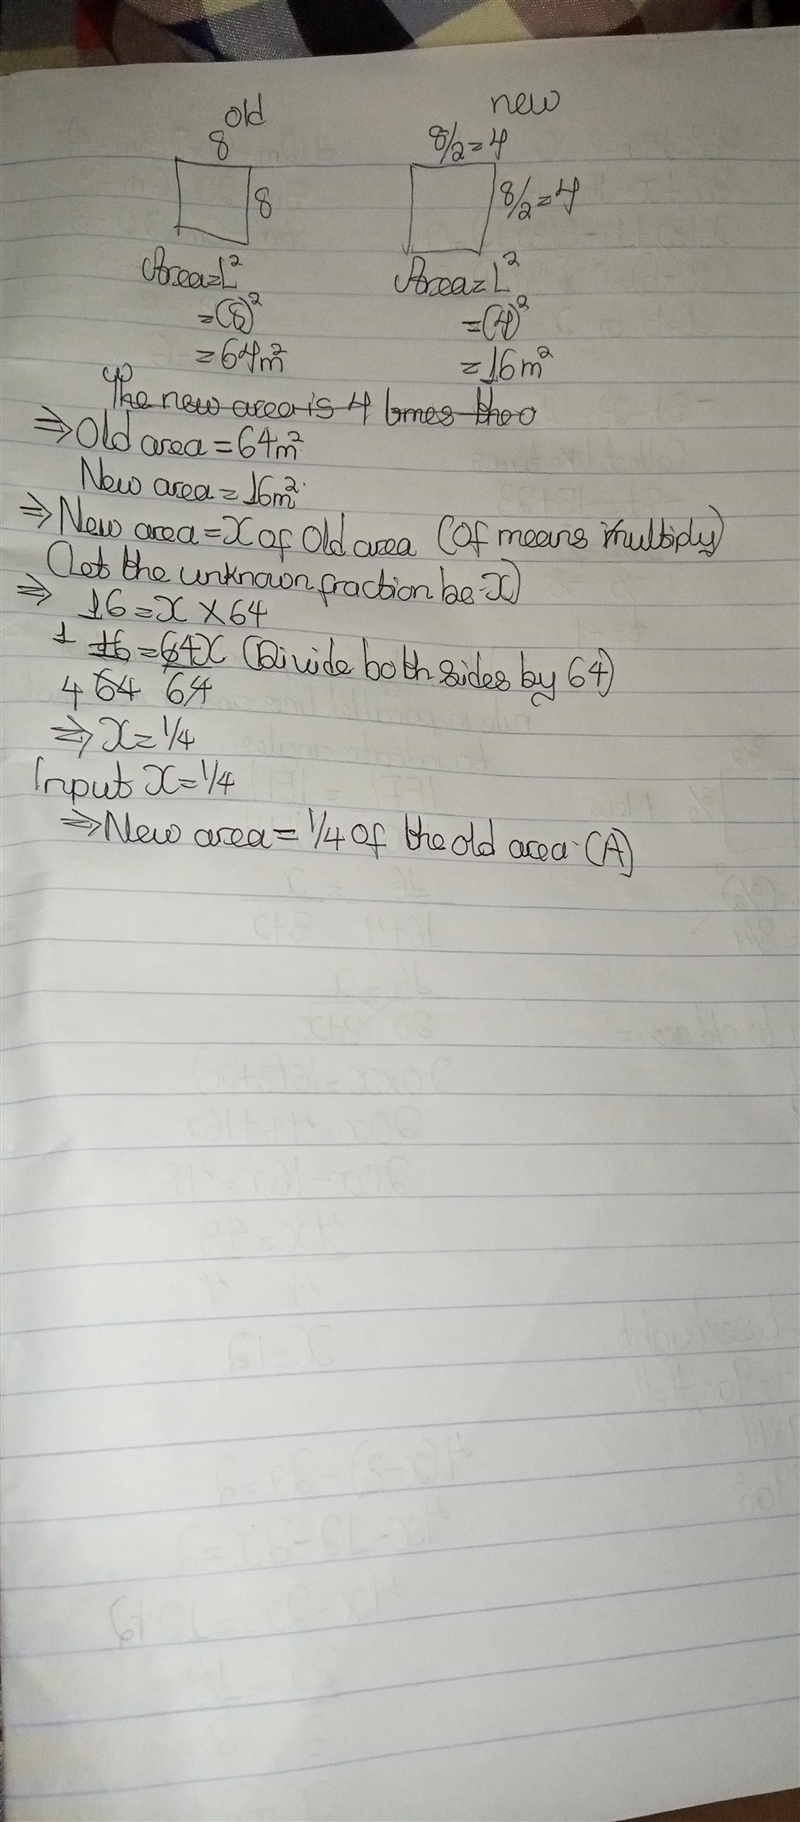 old
new
8
8/2=4
8
8/2=4
Area=L²
Area=L²
=(8)²
=(4)²
=64m²
=16m²
The new area is 4 times the o
⇒Old area=64m²
New area=16m²
⇒New area=x of old area (Of means multiply)
(let the unknown fraction be x)
⇒ 16=x×64
1 16=64x (Divide both sides by 64)
4 64 64
⇒x=1/4
Input x=1/4
⇒New area=1/4 of the old area.(A)